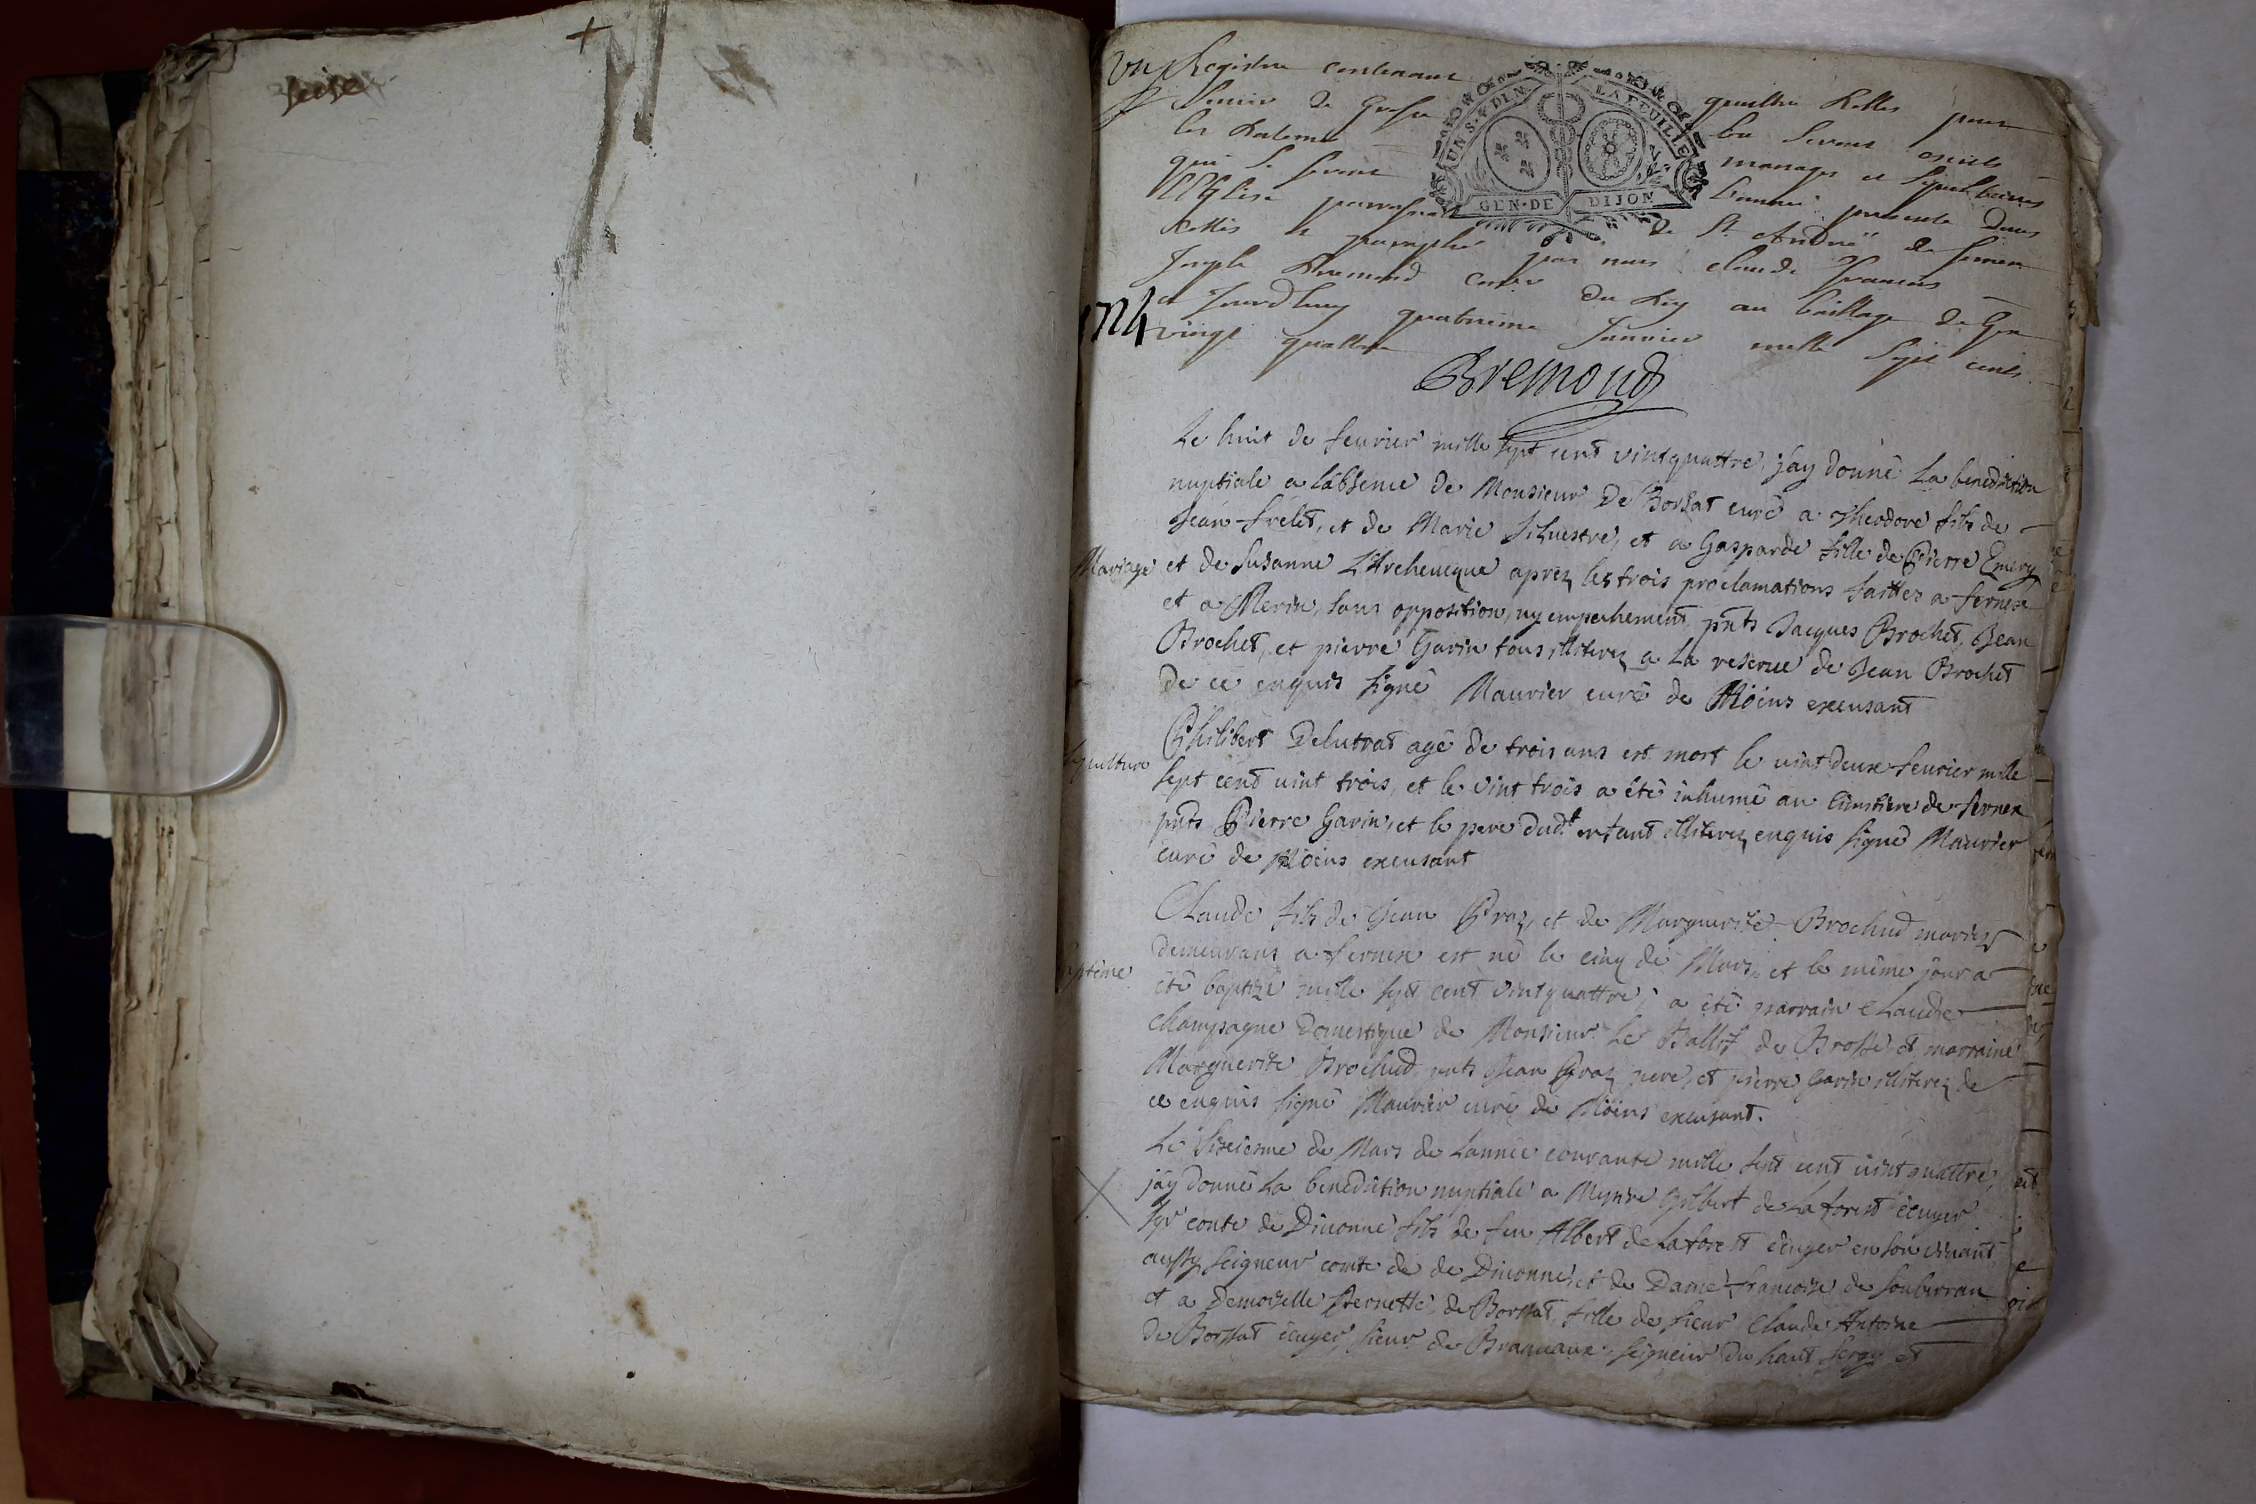 seise
+
Un Registre contenant quattre
Pour servir de Greffe
les Batemes mariages et sepultures
qui se feront
l'Eglise paroissiale de St André de fernex
Cottés et paraphé par nous claude François
Joseph Bremond Conser du Roy au bailliage de Gex
ce Jourdhuy quatrième Janvier mille Sept cents
1724
vingt quattre
UN S. 4 D. LA FEUILLE
GEN. DE DIJON
Bremond
Le huit de feurier mille sept cent vintquattre, j'ay donné La benediction
nuptiale a l'absence de Monsieur De Borsat curé a Theodore fils de
Jean frelet, et de Marie Siluestre, et a Gasparde fille de Pierre Emery
Mariage
et de Susanne L'Archeueque aprez les trois proclamations faittes a fernex
et a Merin, sans opposition, ny empechement, pnts Jacques Brochet, Jean
Brochet, et pierre Gavin tous illiterez a La reserue de Jean Brochet
de ce enquis signé Maurier curé de Moëns excusant
Sepulture
Philibert Delutrat agé de trois ans est mort le uint deux feurier mille
sept cent uint trois, et le vint trois a été inhumé au cimetiere de fernex
pnts Pierre Gavin, et le pere dudt enfant illiterez enquis signé Maurier
curé de Moëns excusant
Claude fils de Jean Graz, et de Marguerite Brochud mariez
Baptême
demeurans a fernex est né le cinq de Mars, et le même jour a
été baptizé mille sept cent vintquattre, a été parrain Claude
Champagne Domestique de Monsieur Le Ballif de Brosse et marraine
Marguerite Brochud, pnts Jean Graz pere, et pierre Gavin illiterez de
ce enquis signé Maurier curé de Moëns excusant.
Le Sixiesme de Mars de Lannée courante mille sept cent vint quattre,
j'ay donné La benediction nuptiale a Messire Gilbert de La forest ecuyer
sgr conte de Diuonne fils de feu Albert de La forest ecuyer en son viuant
aussy Seigneur comte de de Diuonne, et de Dame francoise de
et a Demoiselle Pernette de Borssat, fille de sieur Claude Antoine
de Borssat ecuyer, sieur de seigneur du haut Sergy et